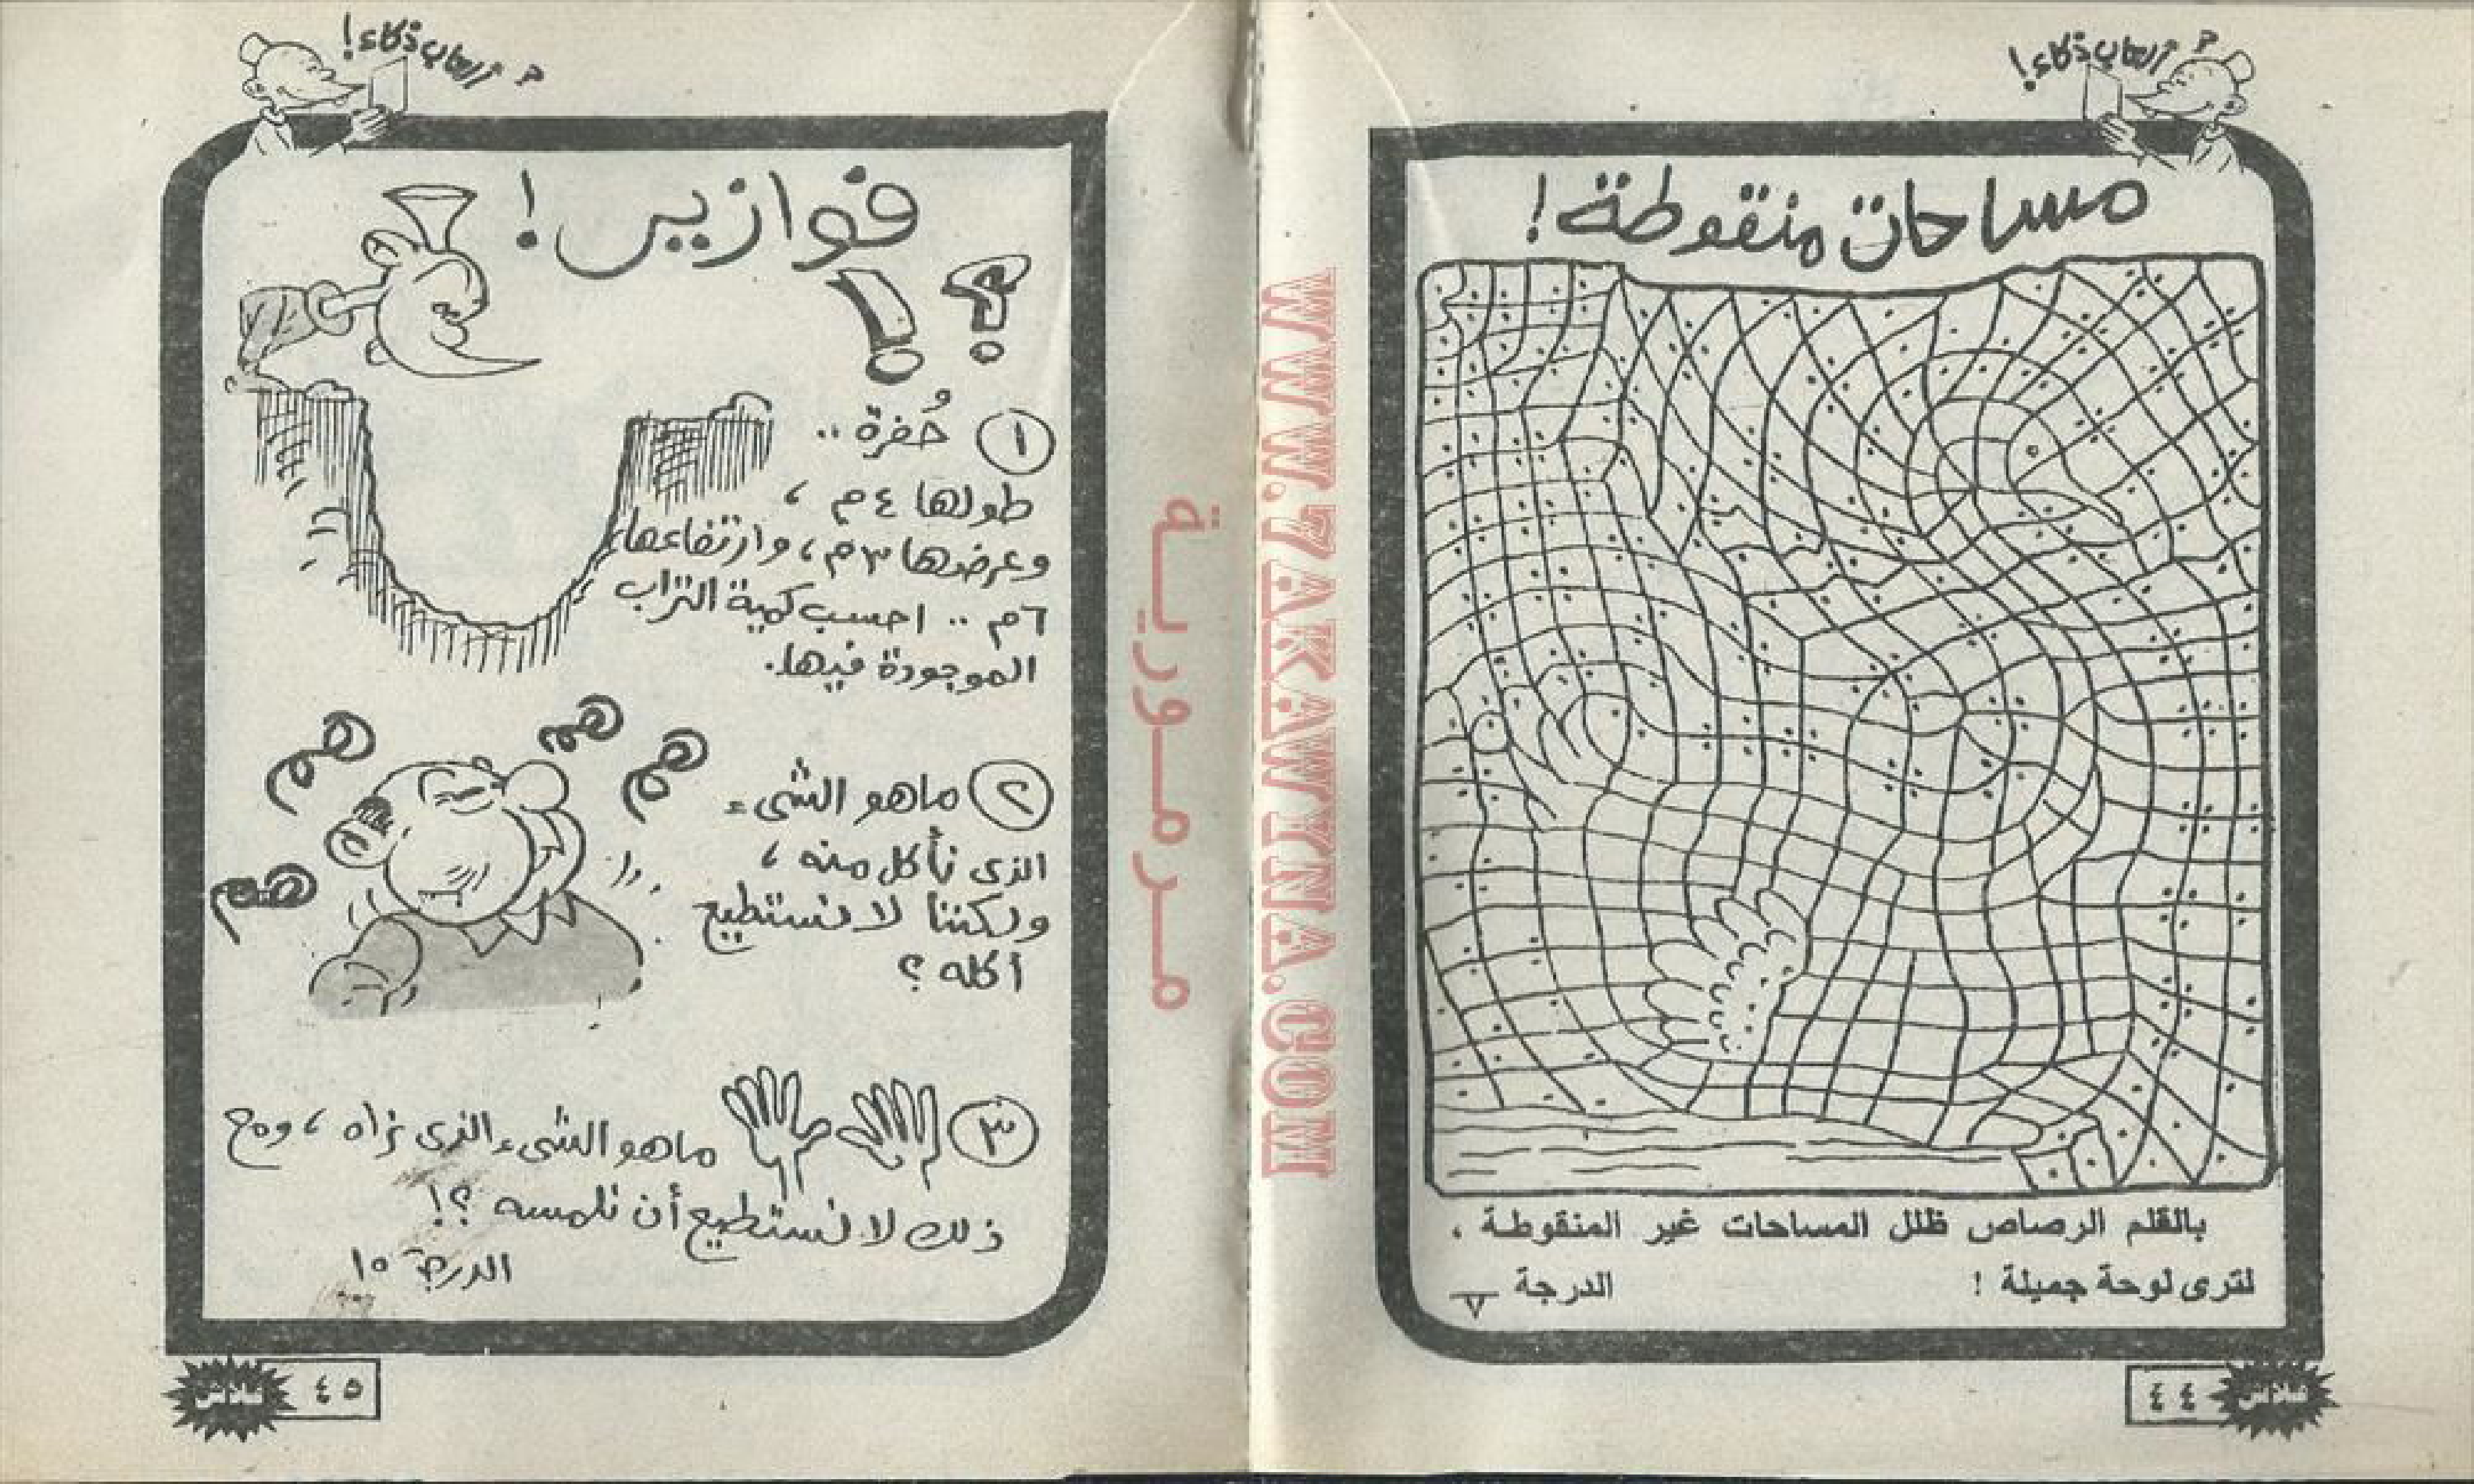 ألعاب ذكاء!
مساحات منقوطة!
بالقلم الرصاص ظلل المساحات غير المنقوطة ،
لترى لوحة جميلة !
الدرجة ٧
٤٤
WWW.ZAKAWTNA.COM
مـرمـوريـة
ألعاب ذكاء!
فوازير!
؟!
١ حُفرة ..
طولها ٤م ،
وعرضها ٣م ، وارتفاعها
٦م .. احسب كمية التراب
الموجودة فيها.
٢ ماهو الشىء
الذى نأكل منه ،
ولكننا لا نستطيع
أكله ؟
٣ ماهو الشىء الذى نراه ، ومع
ذلك لا نستطيع أن نلمسه ؟!
الدرجة ١٥
٤٥